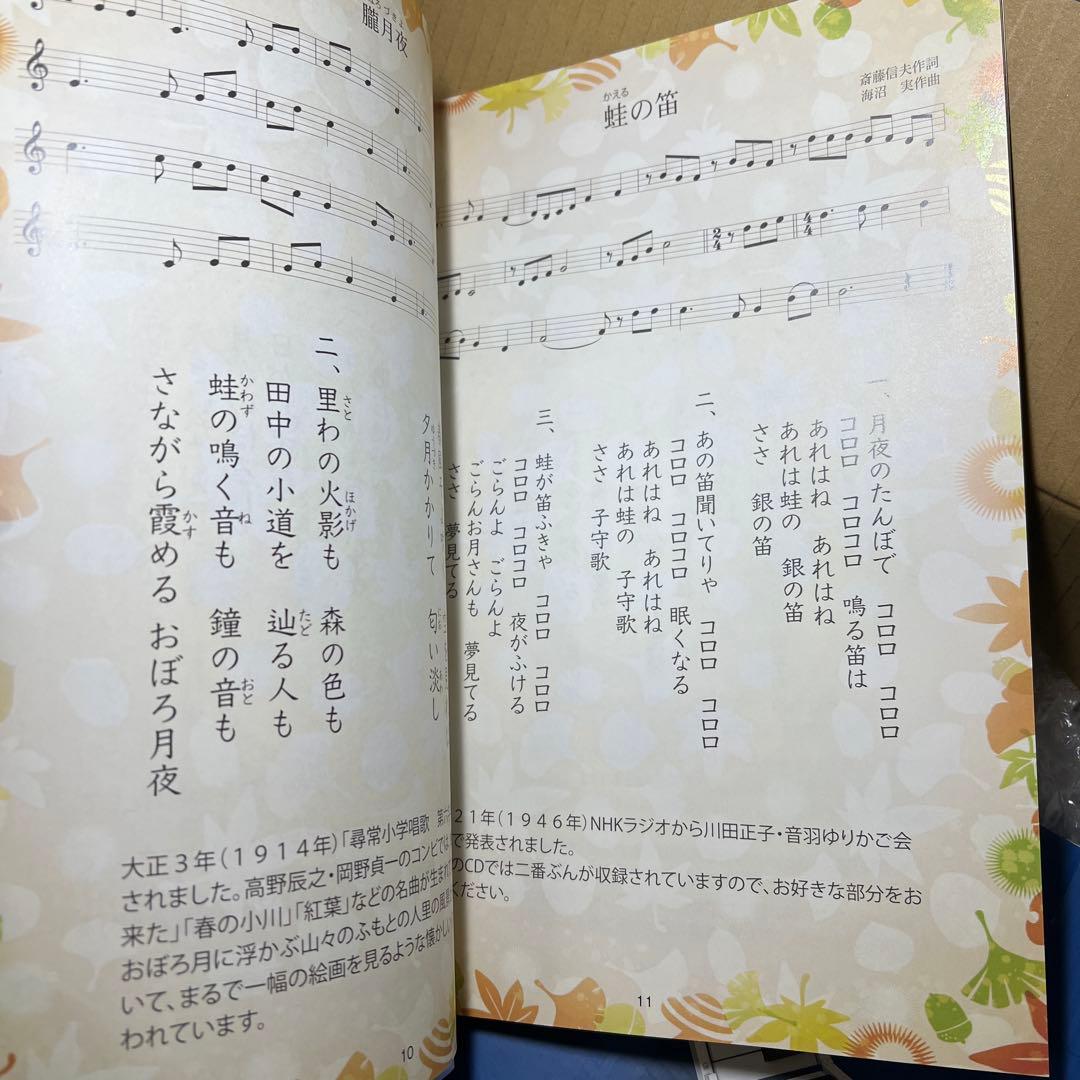 朧月夜
夕月かかりて 匂い淡し
二、里わの火影も 森の色も
さと
ほかげ
田中の小道を 辿る人も
たど
蛙の鳴く音も 鐘の音も
かわず
ね
おと
さながら霞める おぼろ月夜
かす
大正3年(1914年)「尋常小学唱歌 第六
されました。高野辰之・岡野貞一のコンビでは、
来た」「春の小川」「紅葉」などの名曲が生まれ
おぼろ月に浮かぶ山々のふもとの人里の風
いて、まるで一幅の絵画を見るような懐かし
われています。
10
かえる
蛙の笛
斎藤信夫作詞
海沼 実作曲
2/4
4/4
一、月夜のたんぼで コロロ コロロ
コロロ コロコロ 鳴る笛は
あれはね あれはね
あれは蛙の 銀の笛
ささ 銀の笛
二、あの笛聞いてりゃ コロロ コロロ
コロロ コロコロ 眠くなる
あれはね あれはね
あれは蛙の 子守歌
ささ 子守歌
三、蛙が笛ふきゃ コロロ コロロ
コロロ コロコロ 夜がふける
ごらんよ ごらんよ
ごらんお月さんも 夢見てる
ささ 夢見てる
21年(1946年)NHKラジオから川田正子・音羽ゆりかご会
で発表されました。
のCDでは二番ぶんが収録されていますので、お好きな部分をお
ください。
11